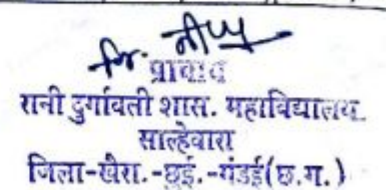 रानी दुर्गावती शास. महाविद्यालय
साल्हेवारा
जिला-खैरा.-छुई.-गंडई(छ.ग.)